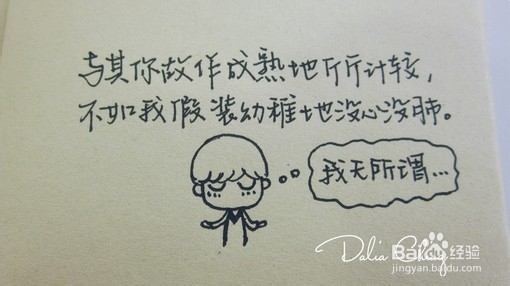 与其你故作成熟地斤斤计较，
不如我假装幼稚地没心没肺。
我无所谓...
Dalia
Baidu经验
jingyan.baidu.com